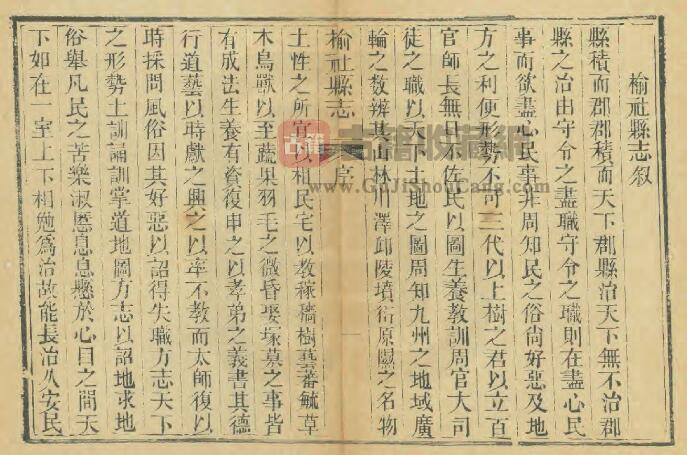 榆社縣志叙
縣積而郡郡積而天下郡縣治天下無不治郡
縣之治由守令之盡職守令之職則在盡心民
事而欲盡心民事非周知民之俗尚好惡及地
方之利便形勢不可三代以上樹之君以立百
官師長無日不佐民以圖生養教訓周官大司
徒之職以天下土地之圖周知九州之地域廣
輪之數辨其山林川澤邱陵墳衍原隰之名物
榆社縣志
序
一
土性之所宜以相民宅以教稼穡樹藝蕃毓草
木鳥獸以至蔬果羽毛之微昏娶塚墓之事皆
有成法生養有資復申之以孝弟之義書其德
行道藝以時獻之興之以率不教而太師復以
時採問風俗因其好惡以詔得失職方志天下
之形勢土訓誦訓掌道地圖方志以詔地求地
俗舉凡民之苦樂淑慝息息懸於心目之間天
下如在一室上下相勉爲治故能長治久安民
古籍收藏網
www.GuJiShouCang.com